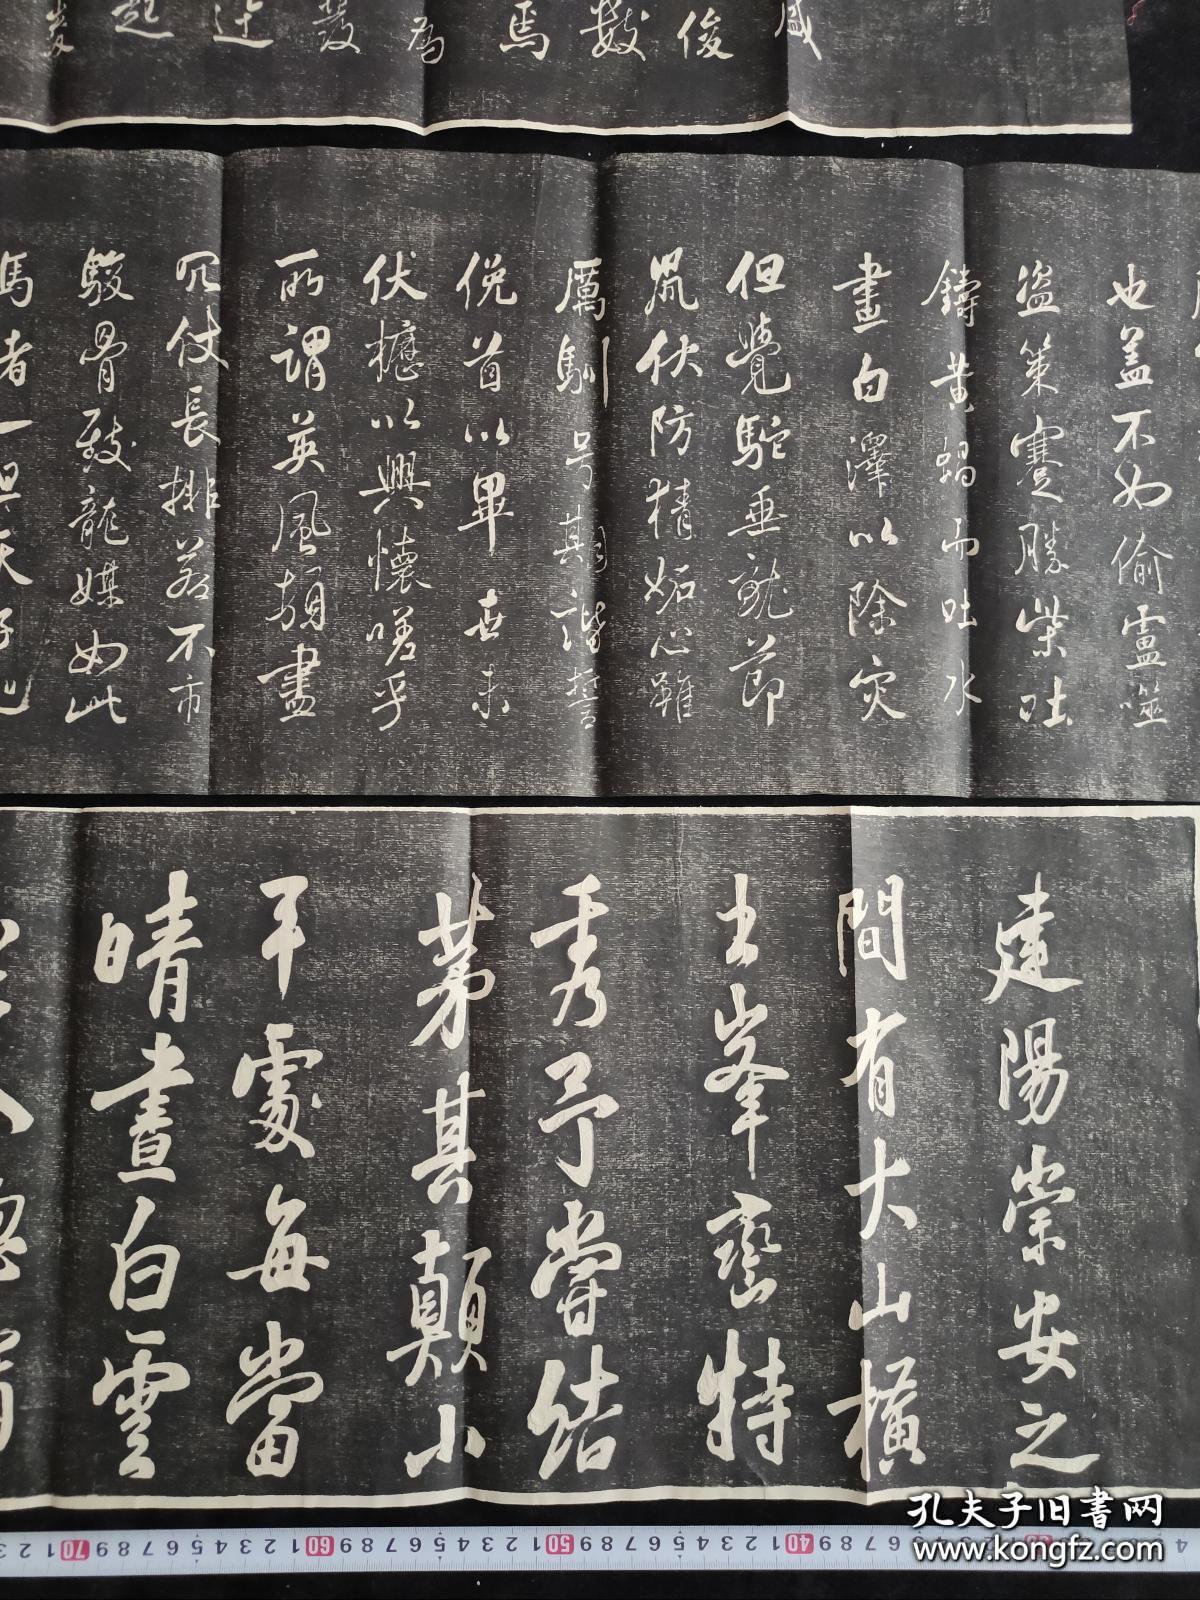 盛
俊
數
馬
為
發
迕
起
也盖不如偷盧噬
盜策蹇勝柴吐
鑄黃蝎而吐水
畫白澤以除灾
但覺駝垂就節
鼠伏防精妬心雖
厲馴号期諧誓
俛首以畢世未
伏櫪以興懷嗟乎
所謂英風頓盡
冗仗長排若不市
駿骨致龍媒如此
馬者一旦天子也
建陽崇安之
間有大山橫
出峯巒特
秀予嘗結
茅其顛小
平處每當
晴晝白雲
孔夫子旧书网
www.kongfz.com